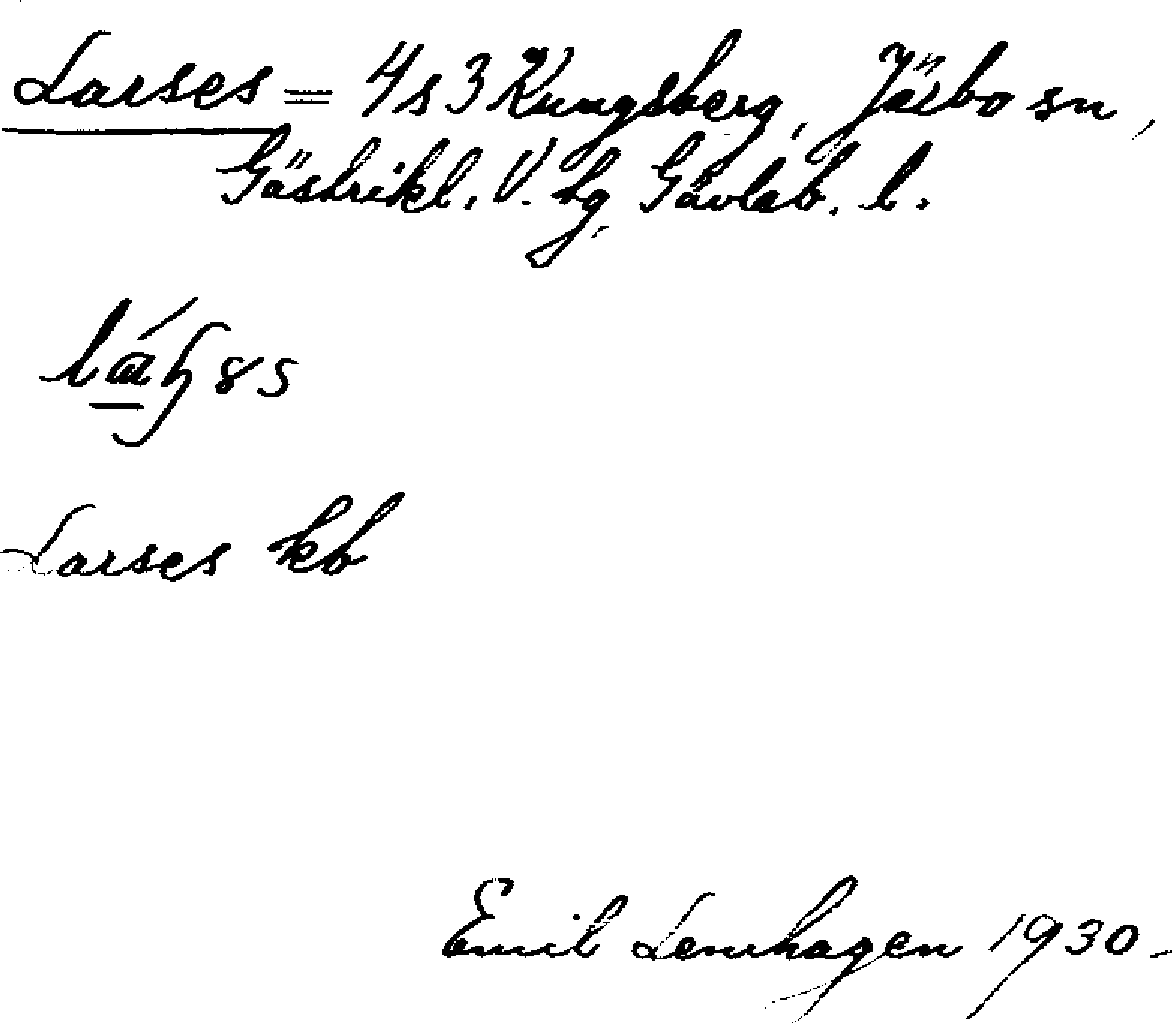 Larses = 4s3 Kungsberg, Järbo sn,
Gästrikl. V. hg, Gävleb. l.
Larses kb
Emil Lenhagen 1930.